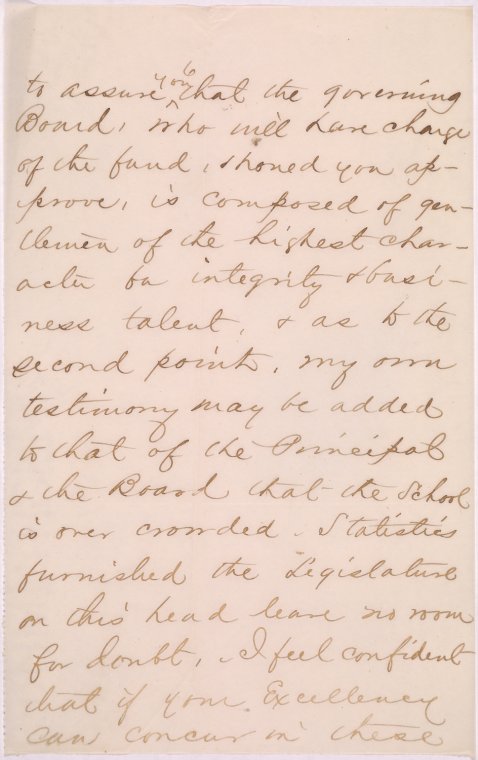 to assure you that the governing
Board, who will have charge
of the fund, shoned you ap-
prove, is composed of gen-
tlemen of the highest char-
acter for integrity & busi-
ness talent, & as to the
second point, my own
testimony may be added
to that of the Principal
& the Board that the School
is over crowded. Statistics
furnished the Legislature
on this head leave no room
for doubt, I feel confident
that if your Excellency
can concur in these